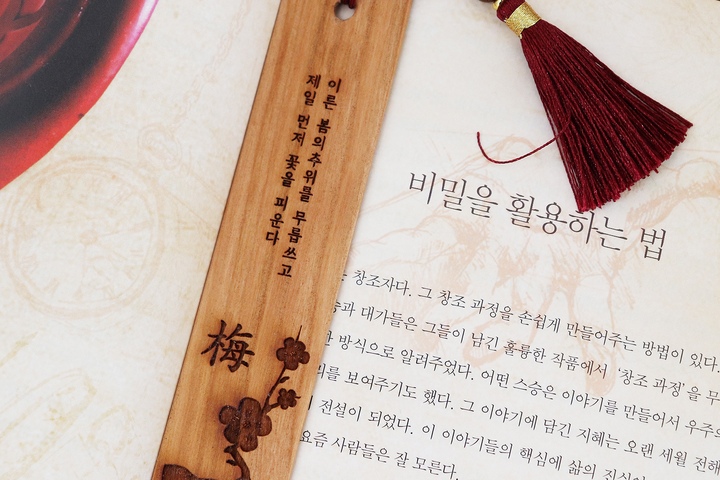 이른 봄의 추위를 무릅쓰고
제일 먼저 꽃을 피운다
梅
비밀을 활용하는 법
창조자다. 그 창조 과정을 손쉽게 만들어주는 방법이 있다.
대가들은 그들이 남긴 훌륭한 작품에서 '창조 과정'을 무
방식으로 알려주었다. 어떤 스승은 이야기를 만들어서 우주의
를 보여주기도 했다. 그 이야기에 담긴 지혜는 오랜 세월 전해
전설이 되었다. 이 이야기들의 핵심에 삶의
요즘 사람들은 잘 모른다.